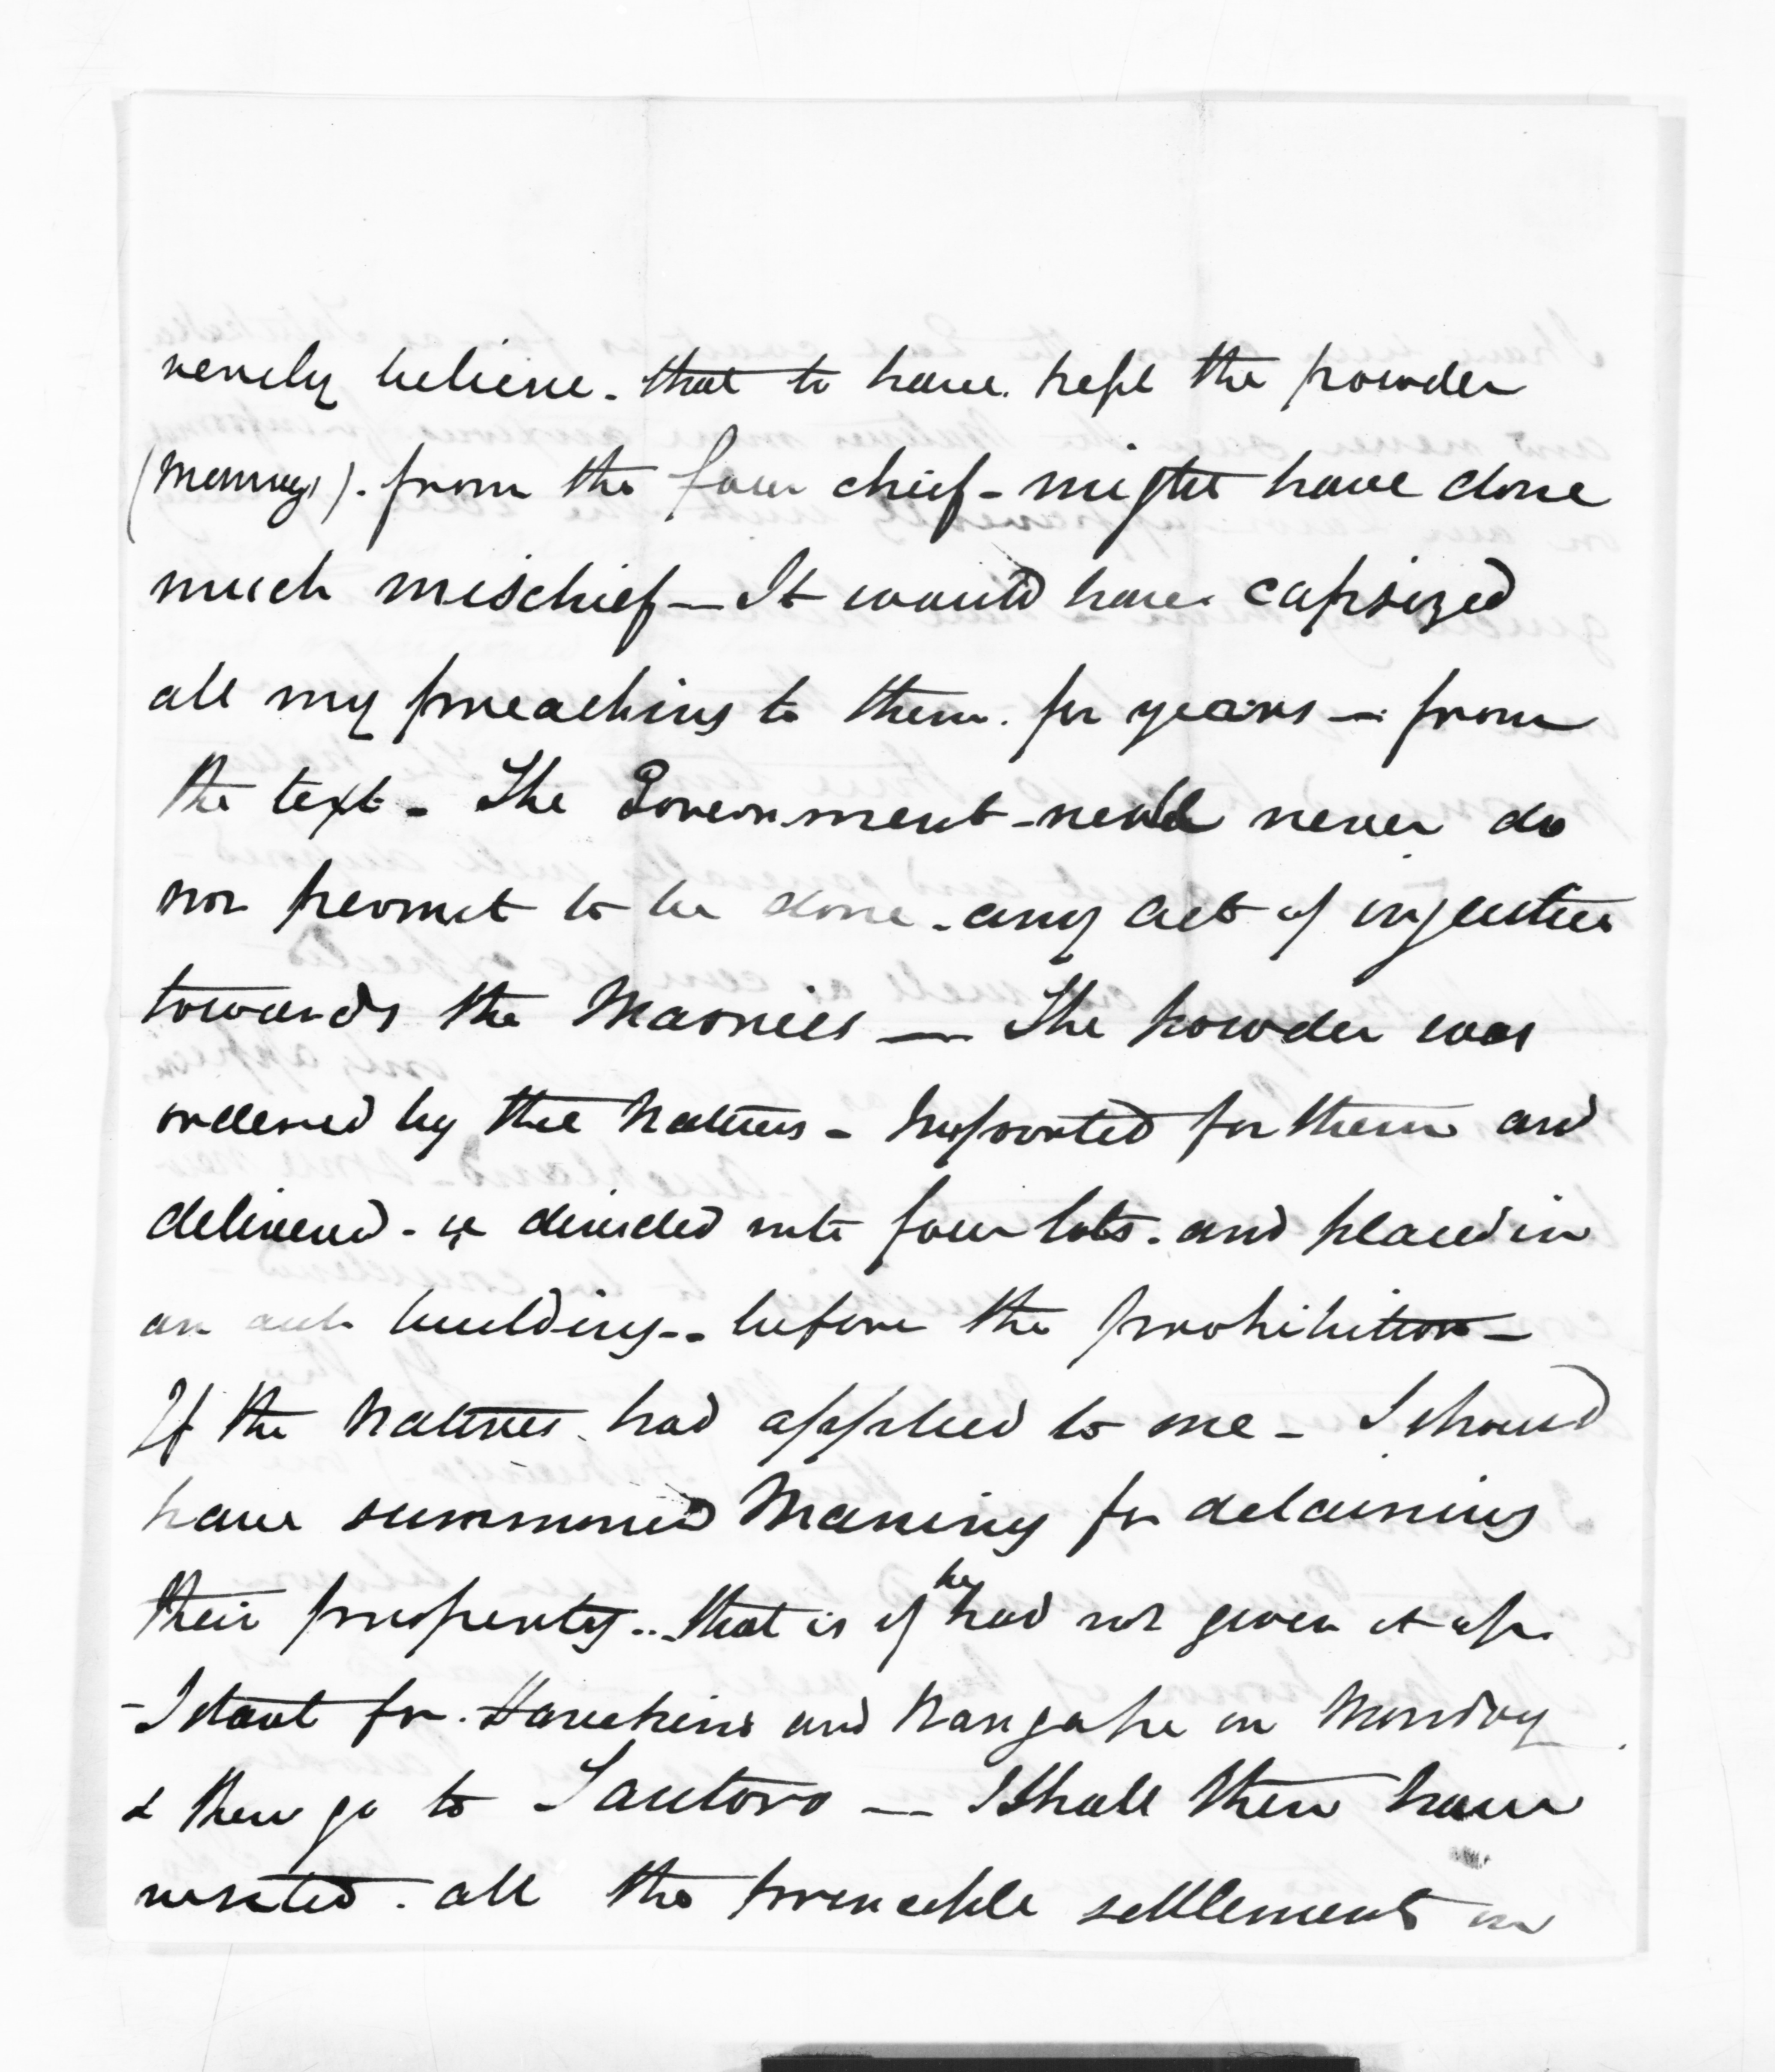 verily believe - that to have kept the powder
(Mannings). from the four chief - might have done
much mischief — It would have capsized
all my preaching to them. for years — from
the text - The Government - will never do
nor permit to be done - any act of injustice
towards the Maories — The powder was
ordered by the Natives - Imported for them and
delivered - & divided into four lots. and placed in
an out building -- before the prohibition -
If the Natives had applied to me - I should
have summoned Maning for detaining
their property .. that is if he had not given it up.
- I start for. and Mangape on Monday
& then go to — I shall then have
visited. all the principle settlements in